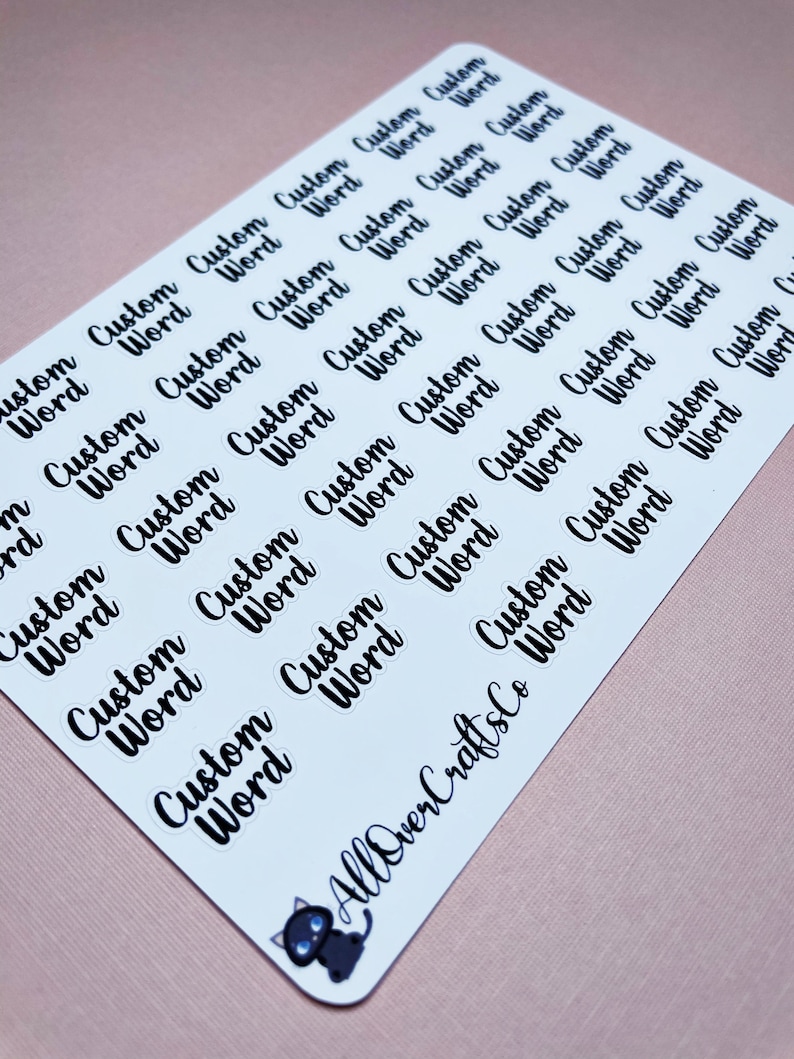 Custom
Word
Custom
Word
Custom
Word
Custom
Word
Custom
Word
Custom
Word
Custom
Word
Custom
Word
Custom
Word
Custom
Word
Custom
Word
Custom
Word
Custom
Word
Custom
Word
Custom
Word
Custom
Word
Custom
Word
Custom
Word
Custom
Word
Custom
Word
Custom
Word
Custom
Word
Custom
Word
Custom
Word
Custom
Word
Custom
Word
Custom
Word
Custom
Word
Custom
Word
Custom
Word
Custom
Word
Custom
Word
Custom
Word
Custom
Word
Custom
Word
Custom
Word
Custom
Word
AllOverCraftsCo